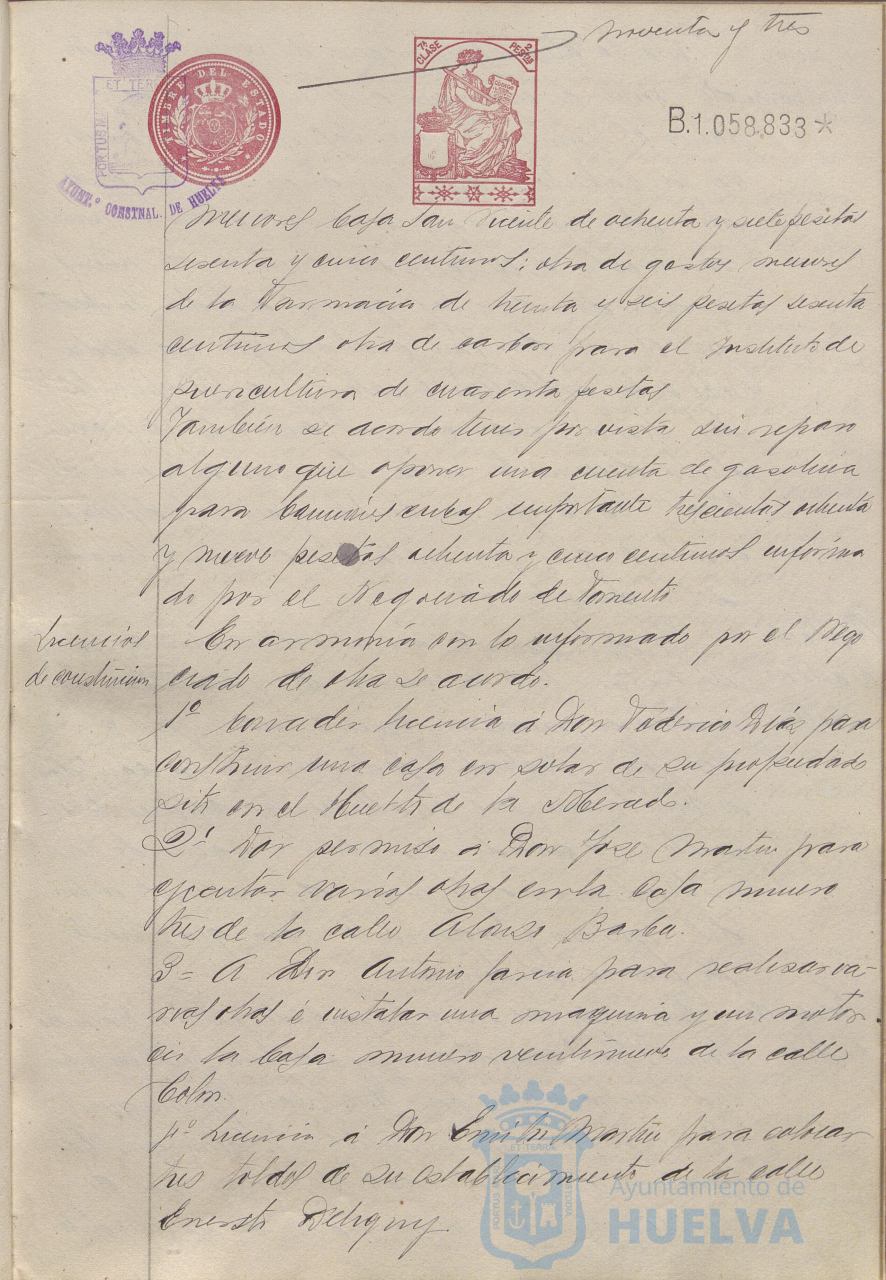 noventa y tres
7ª CLASE
2 PESETAS
TIMBRE DEL ESTADO
PORTUS M
ET TERR
AYUNT.º CONSTNAL. DE HUELVA
B.1.058,833 *
menores Casa San Vicente de ochenta y siete pesetas
sesenta y cinco centimos; otra de gastos menores
de la Farmacia de treinta y seis pesetas sesenta
centimos otra de carbon para el Instituto de
puericultura de cuarenta pesetas
También se acordo tener por vista sin reparo
alguno que oponer una cuenta de gasolina
para Camiones cubas importante trescientas ochenta
y nueve pesetas ochenta y cinco centimos informa
do por el Negociado de Fomento
Licencias
de construcion
En armonia con lo informado por el Nego
ciado de obra se acordo.
1º Conceder licencia á Don Federico Diaz para
construir una casa en solar de su propiedad
sito en el Huerto de la Merced.
2º Dar permiso á Don Jose Martin para
ejecutar varias obras en la casa numero
tres de la calle Alonso Barba.
3 = A Don Antonio Garcia para realisar va-
rias obras é instalar una maquina y un motor
en la Casa numero veintinueve de la calle
Colon.
4º Licencia á Don Emilio Martin para colocar
tres toldos de su establecimiento de la calle
Ernesto Deligny
PORTUS MARIS
ET TERRA
CUSTODIA
Ayuntamiento de
HUELVA